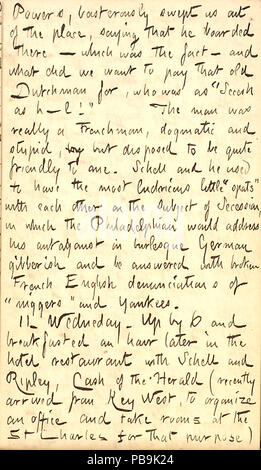 Powers, boisterously swept us out
of the place, saying that he boarded
there — which was the fact — and
what did we want to pay that old
Dutchman for, who was as "Secesh
as h—l!" The man was
really a Frenchman, dogmatic and
stupid, but disposed to be quite
friendly to me. Schell and he used
to have the most ludicrous little "spats"
with each other on the subject of Secession,
in which the Philadelphian would address
his antagonist in burlesque German
gibberish and be answered with broken
French English denunciations of
"niggers" and Yankees.
11. Wednesday. Up by 6 and
breakfasted an hour later in the
hotel restaurant with Schell and
Ripley, Cash of the Herald (recently
arrived from Key West, to organize
an office and take rooms at the
St Charles for that purpose)
alamy
PB9K24